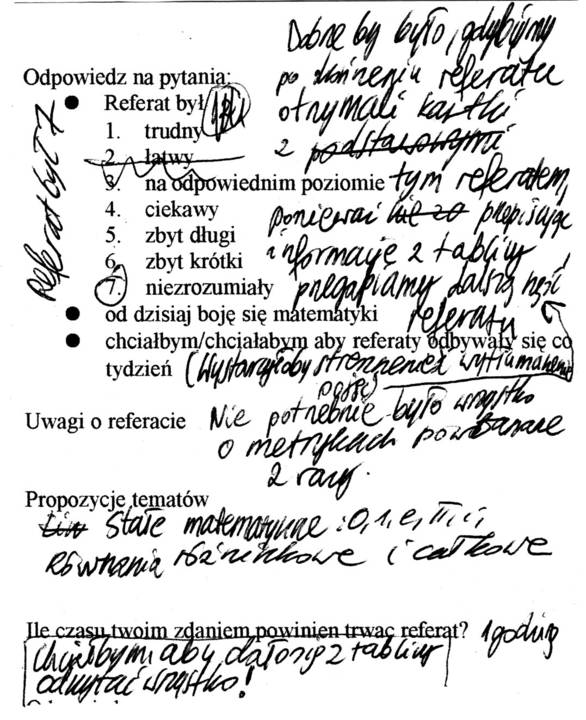 Dobrze by było, gdybyśmy
po skończeniu referatu
otrzymali kartki
z podstawowymi
tym referatem,
ponieważ nie za przepisując
informacje z tablicy
przegapiamy dalszą część
referatu
Odpowiedz na pytania:
Referat był
1. trudny
2. łatwy
3. na odpowiednim poziomie
4. ciekawy
5. zbyt długi
6. zbyt krótki
7. niezrozumiały
od dzisiaj boję się matematyki
chciałbym/chciałabym aby referaty odbywały się co
tydzień (Wystarczyłoby streszczenie i wytłumaczenie
pojęć)
Referat był 7
Uwagi o referacie Nie potrzebnie było wszystko
o metrykach powtarzane
2 razy.
Propozycje tematów
Stałe matematyczne: 0, 1, e, π, i,
Równania różniczkowe i całkowe
Ile czasu twoim zdaniem powinien trwac referat? 1 godzinę
Chciałbym aby dało się z tablicy
odczytać wszystko!